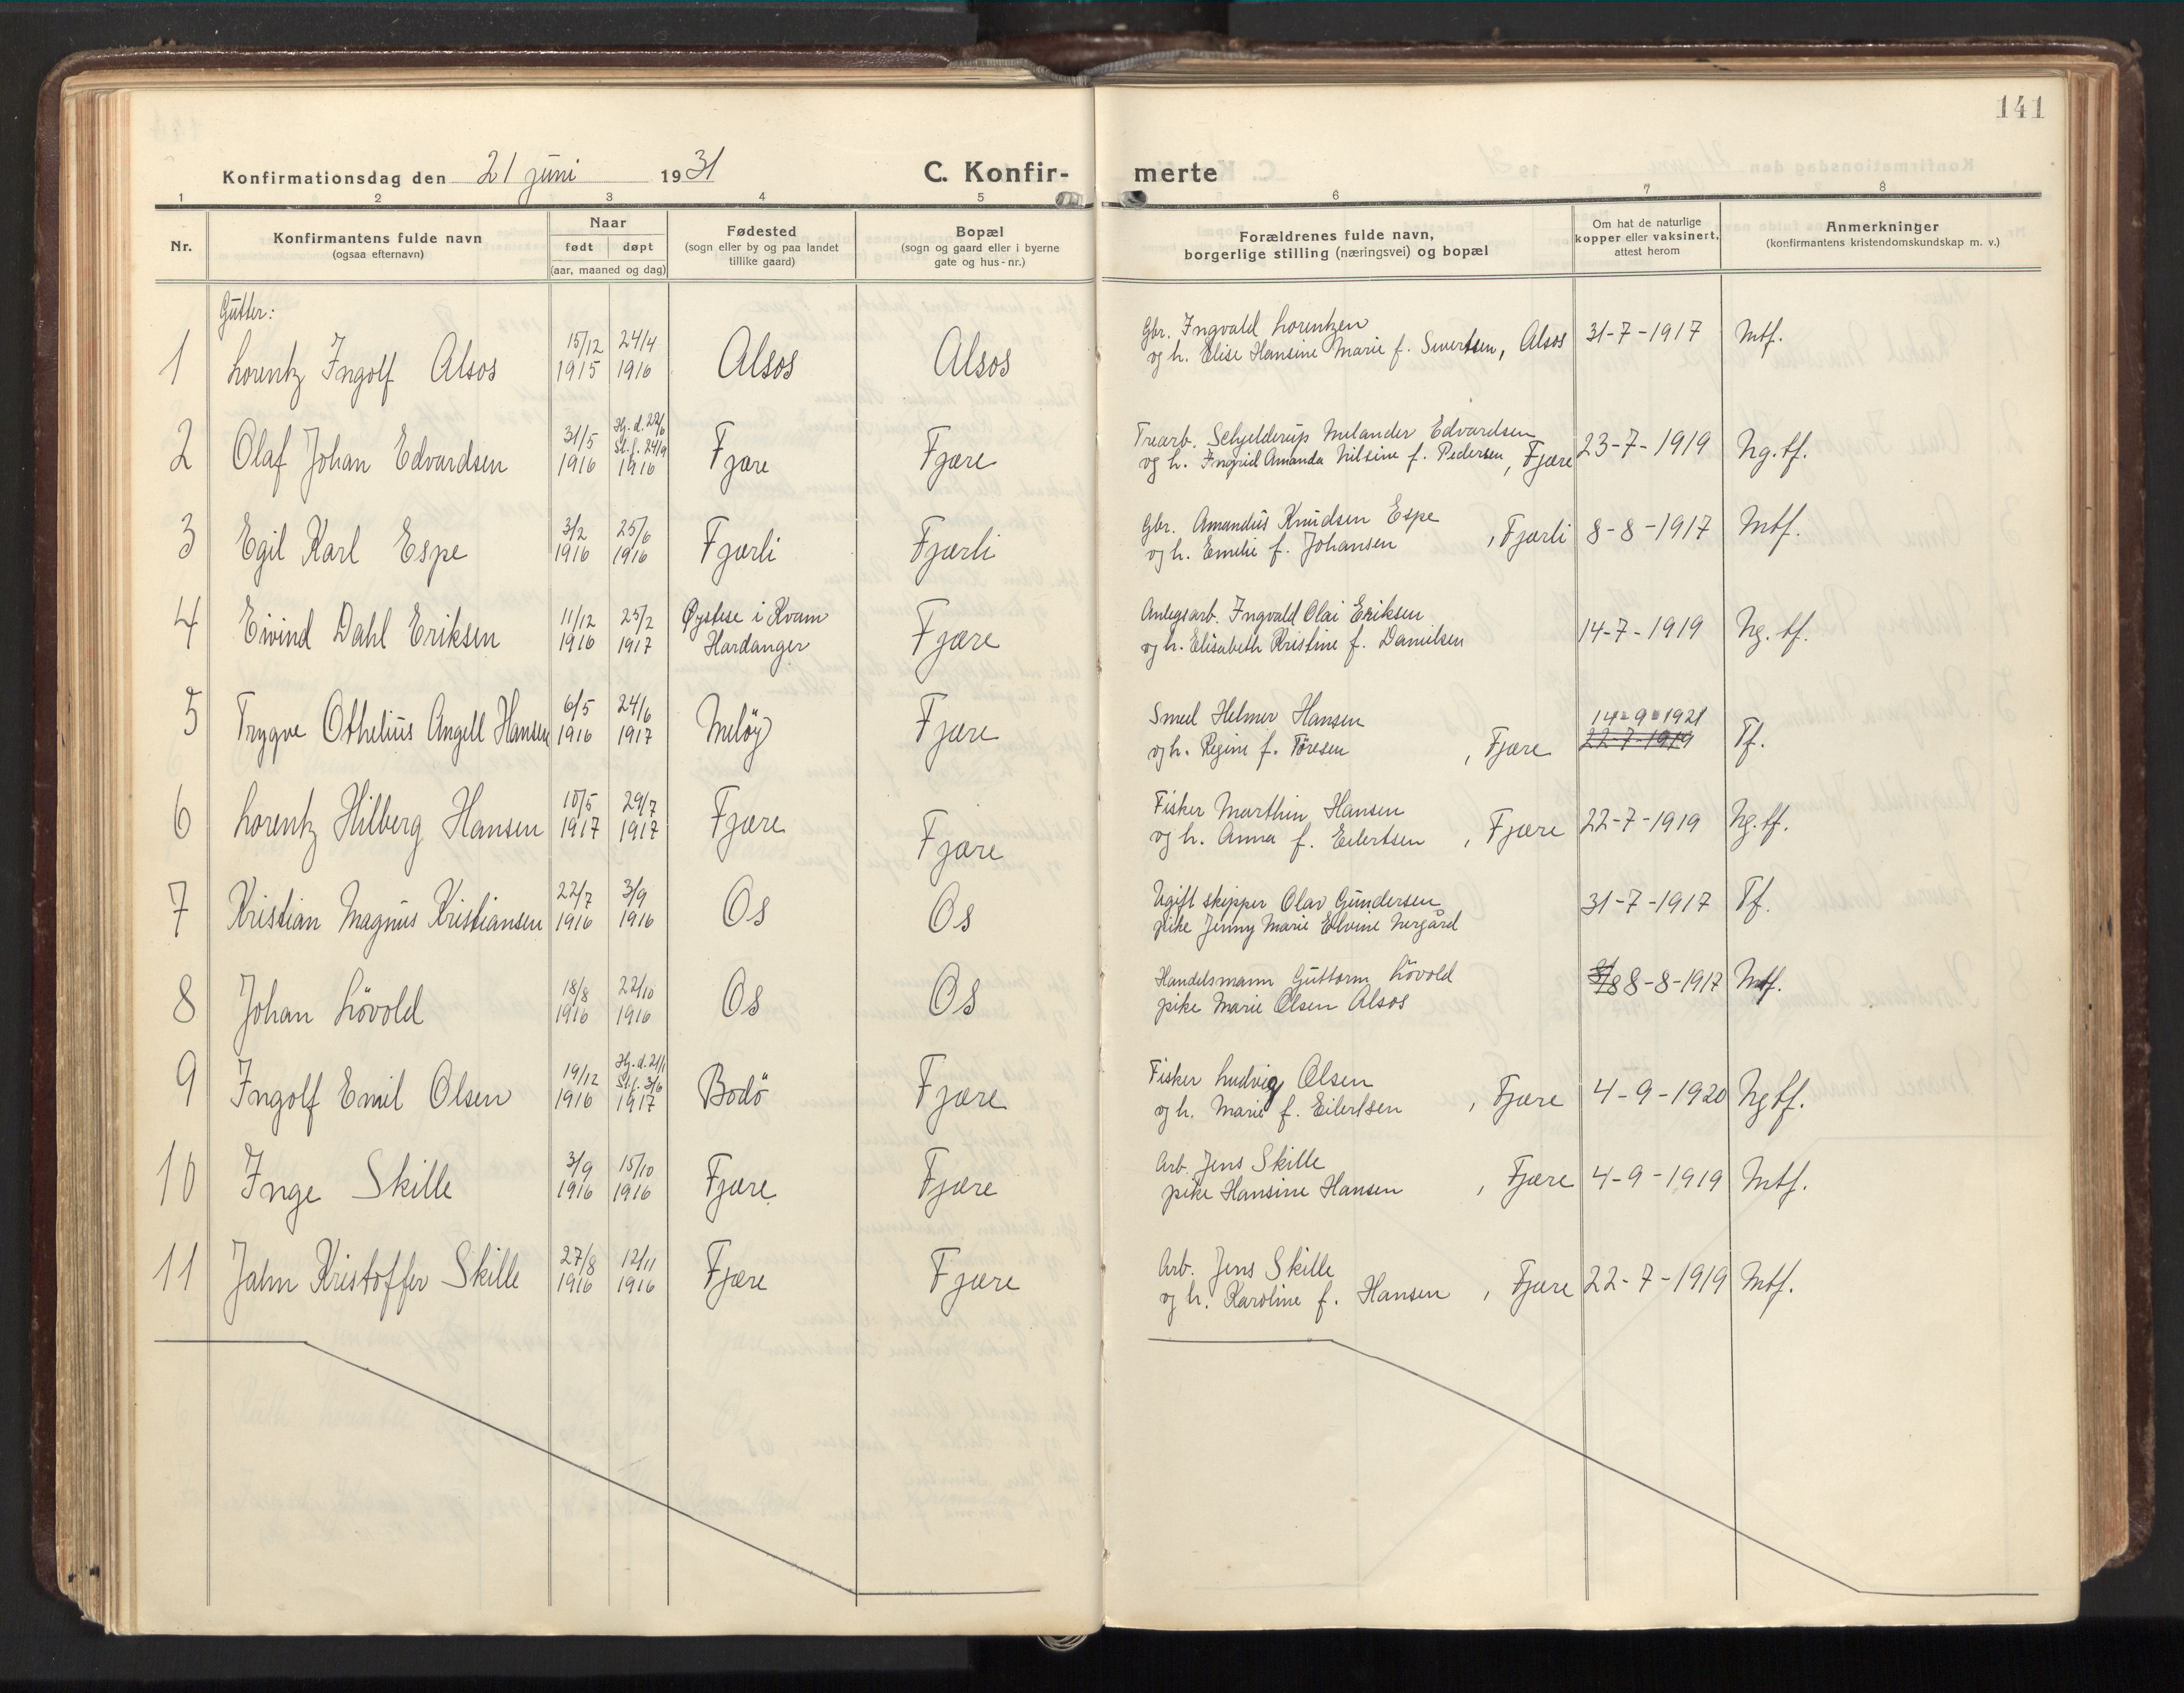 141
Konfirmationsdag den 21 juni 1931 C. Konfir- merte
1 2 3 4 5 6 7 8
Nr.
Konfirmantens fulde navn
(ogsaa efternavn)
Naar
født døpt
(aar, maaned og dag)
Fødested
(sogn eller by og paa landet
tillike gaard)
Bopæl
(sogn og gaard eller i byerne
gate og hus-nr.)
Forældrenes fulde navn,
borgerlige stilling (næringsvei) og bopæl
Om hat de naturlige
kopper eller vaksinert,
attest herom
Anmerkninger
(konfirmantens kristendomskundskap m. v.)
Gutter:
1 Lorentz Ingolf Alsos 15/12 1915 24/4 1916 Alsos Alsos
Gbr. Ingvald Lorentzen
og h. Elise Hansine Marie f. Sivertsen, Alsos 31-7-1917 Mtf.
2 Olaf Johan Edvardsen 31/5 1916 Hj. d. 22/6 St. f. 24/9 1916 Fjære Fjære
Trearb. Schjelderup Melander Edvardsen
og h. Ingrid Amanda Nilsine f. Pedersen, Fjære 23-7-1919 Ng. tf.
3 Egil Karl Espe 3/2 1916 25/6 1916 Fjærli Fjærli
Gbr. Amandus Knudsen Espe
og h. Emelie f. Johansen, Fjærli 8-8-1917 Mtf.
4 Eivind Dahl Eriksen 11/12 1916 25/2 1917 Øystese i Kvam Hardanger Fjære
Anlegsarb. Ingvald Olai Eriksen
og h. Elisabeth Kristine f. Danielsen 14-7-1919 Ng. tf.
5 Trygve Othelius Angell Hansen 6/5 1916 24/6 1917 Meløy Fjære
Smed Helmer Hansen
og h. Regine f. Tøresen, Fjære 14-9-1921 22-7-1919 Tf.
6 Lorentz Hilberg Hansen 10/5 1917 29/7 1917 Fjære Fjære
Fisker Marthin Hansen
og h. Anna f. Eilertsen, Fjære 22-7-1919 Ng. tf.
7 Kristian Magnus Kristiansen 22/7 1916 3/9 1916 Os Os
Ugift skipper Olav Gundersen
pike Jenny Marie Elvine Nergård 31-7-1917 Tf.
8 Johan Løvold 18/8 1916 22/10 1916 Os Os
Handelsmann Guttorm Løvold
pike Marie Olsen Alsos 8-8-1917 Mtf.
9 Ingolf Emil Olsen 19/12 1916 Hj. d. 21/1 St. f. 3/6 1917 Bodö Fjære
Fisker Ludvig Olsen
og h. Marie f. Eilertsen, Fjære 4-9-1920 Ng tf.
10 Inge Skille 3/9 1916 15/10 1916 Fjære Fjære
Arb. Jens Skille
pike Hansine Hansen, Fjære 4-9-1919 Mtf.
11 Jahn Kristoffer Skille 27/8 1916 12/11 1916 Fjære Fjære
Arb. Jens Skille
og h. Karoline f. Hansen, Fjære 22-7-1919 Mtf.